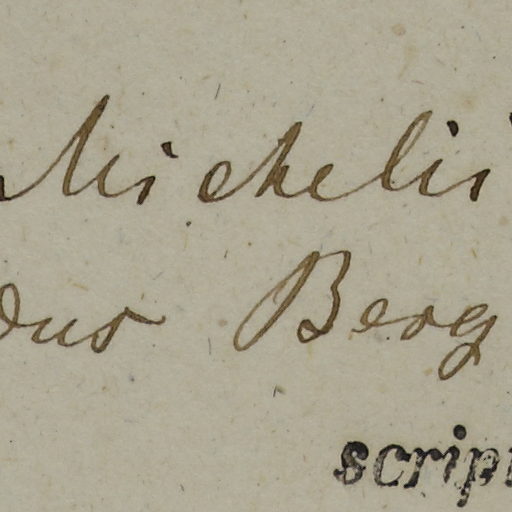 Michelis
dus Berg
scrip